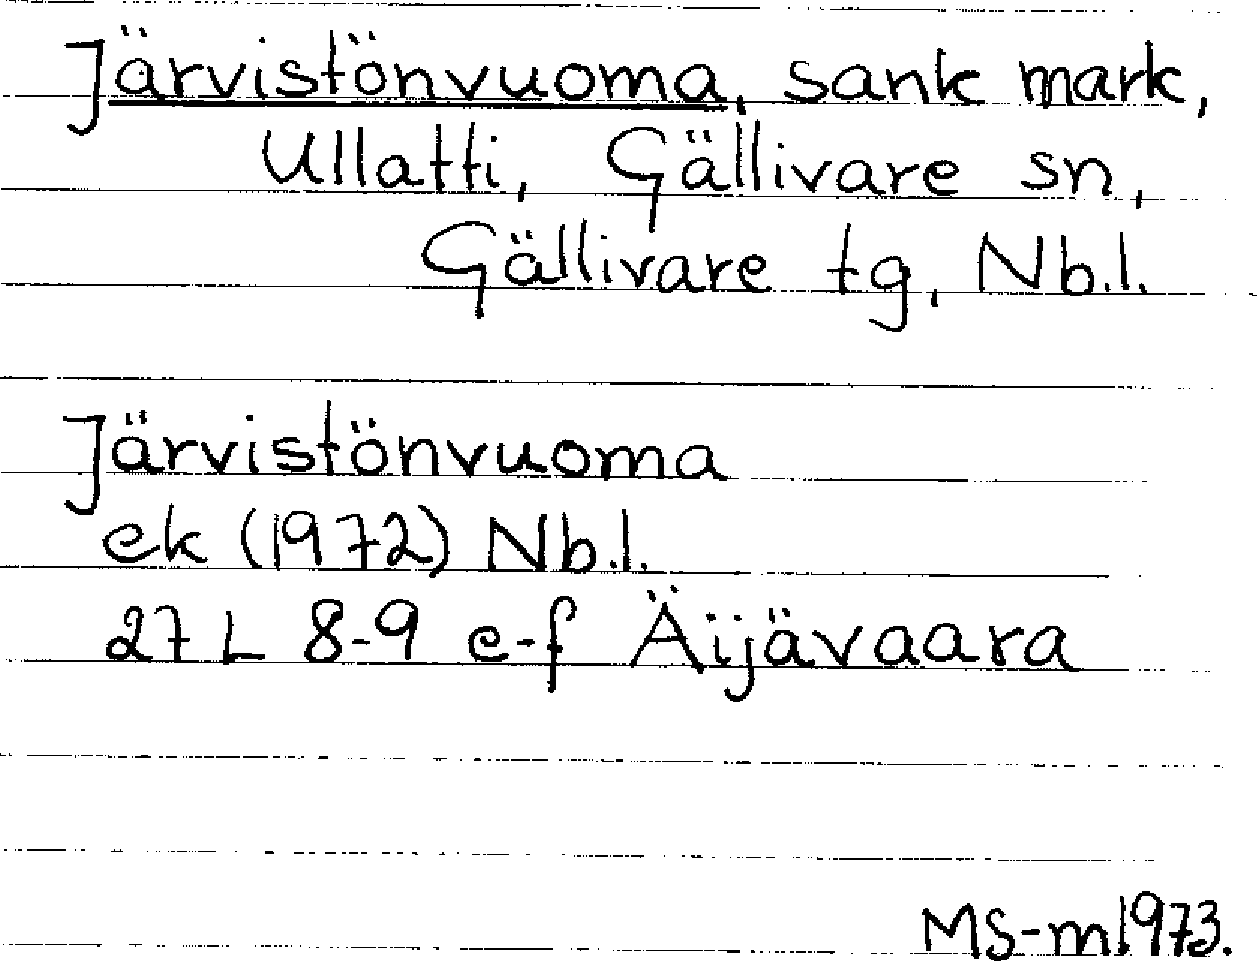 Järvistönvuoma, sank mark,
Ullatti, Gällivare sn,
Gällivare tg, Nb.l.
Järvistönvuoma
ek (1972) Nb.l.
27 L 8-9 e-f Äijävaara
MS-m 1973.